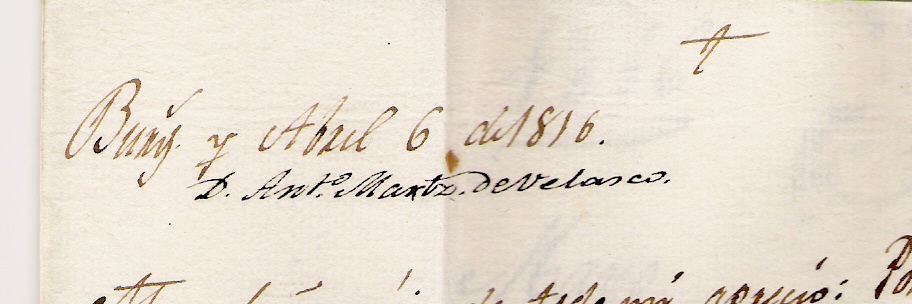 y Abril 6 de 1816.
D. Ant.º Martz. de Velasco.
de toda mi aprecio: Por